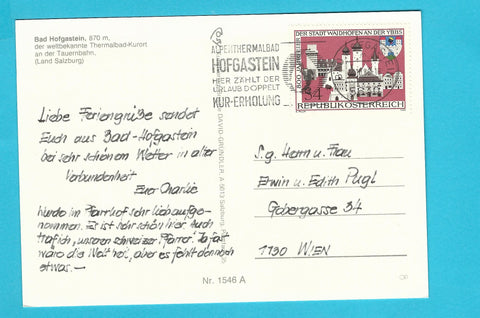 Bad Hofgastein, 870 m,
der weltbekannte Thermalbad-Kurort
an der Tauernbahn.
(Land Salzburg)
Liebe Feriengrüße sendet
Euch aus Bad-Hofgastein
bei sehr schönem Wetter in alter
Verbundenheit
Euer Charlie
Wurde im Pfarrhof sehr lieb aufge-
nommen. Es ist sehr schön hier. Auch
traf ich "unseren schweizer Pfarrer". Ja, fast
wäre die Welt heil, aber es fehlt dennoch
etwas.—
ALPENTHERMALBAD
HOFGASTEIN
HIER ZÄHLT DER
URLAUB DOPPELT
KUR-ERHOLUNG
DER STADT WAIDHOFEN AN DER YBBS
800 JAHRE
S4
REPUBLIK ÖSTERREICH
DAVID-GRÜNDLER, A 5013 Salzburg
S.g. Herrn u. Frau
Erwin u. Edith Pugl
Gobergasse 34
1130 WIEN
Nr. 1546 A